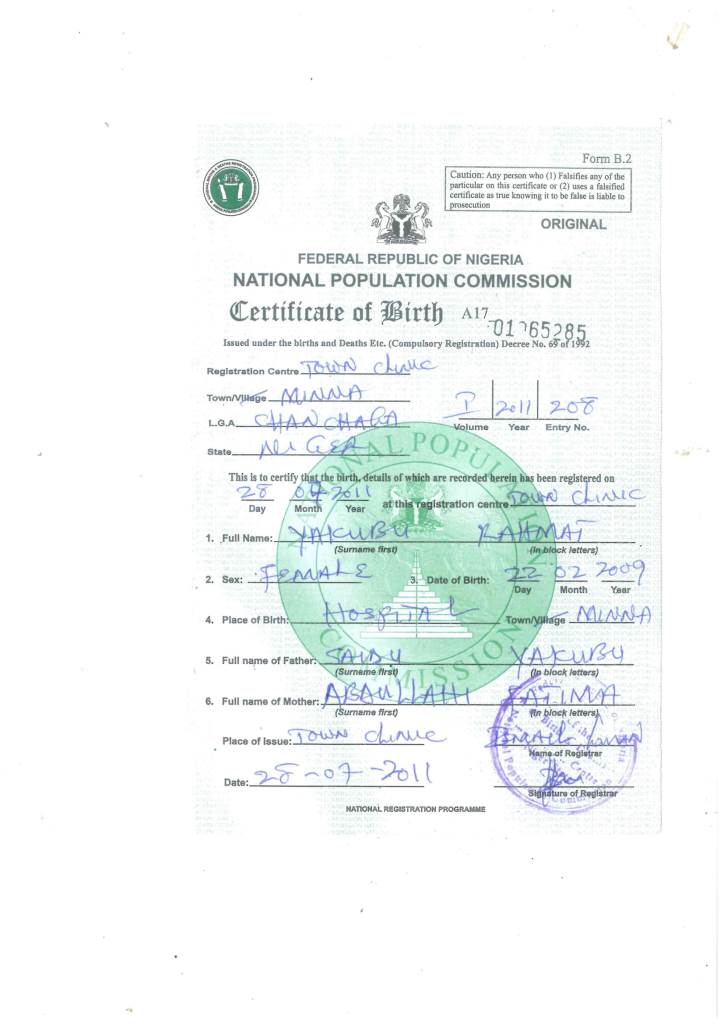 Form B.2
Caution: Any person who (1) Falsifies any of the
particular on this certificate or (2) uses a falsified
certificate as true knowing it to be false is liable to
prosecution
ORIGINAL
FEDERAL REPUBLIC OF NIGERIA
NATIONAL POPULATION COMMISSION
Certificate of Birth A17 01265285
Issued under the births and Deaths Etc. (Compulsory Registration) Decree No. 69 of 1992
Registration Centre TOWN CLINIC
Town/Village MINNA
I 2011 208
L.G.A. CHANCHAGA Volume Year Entry No.
State NIGER
This is to certify that the birth, details of which are recorded herein has been registered on
28 07 2011 at this registration centre TOWN CLINIC
Day Month Year
1. Full Name: YAKUBU RAHMAT
(Surname first) (In block letters)
2. Sex: FEMALE 3. Date of Birth: 22 02 2009
Day Month Year
4. Place of Birth: HOSPITAL Town/Village MINNA
5. Full name of Father: SAIDU YAKUBU
(Surname first) (In block letters)
6. Full name of Mother: ABDULLAHI FATIMA
(Surname first) (In block letters)
Place of Issue: TOWN CLINIC
Name of Registrar
Date: 28-07-2011
Signature of Registrar
NATIONAL REGISTRATION PROGRAMME
NATIONAL POPULATION COMMISSION